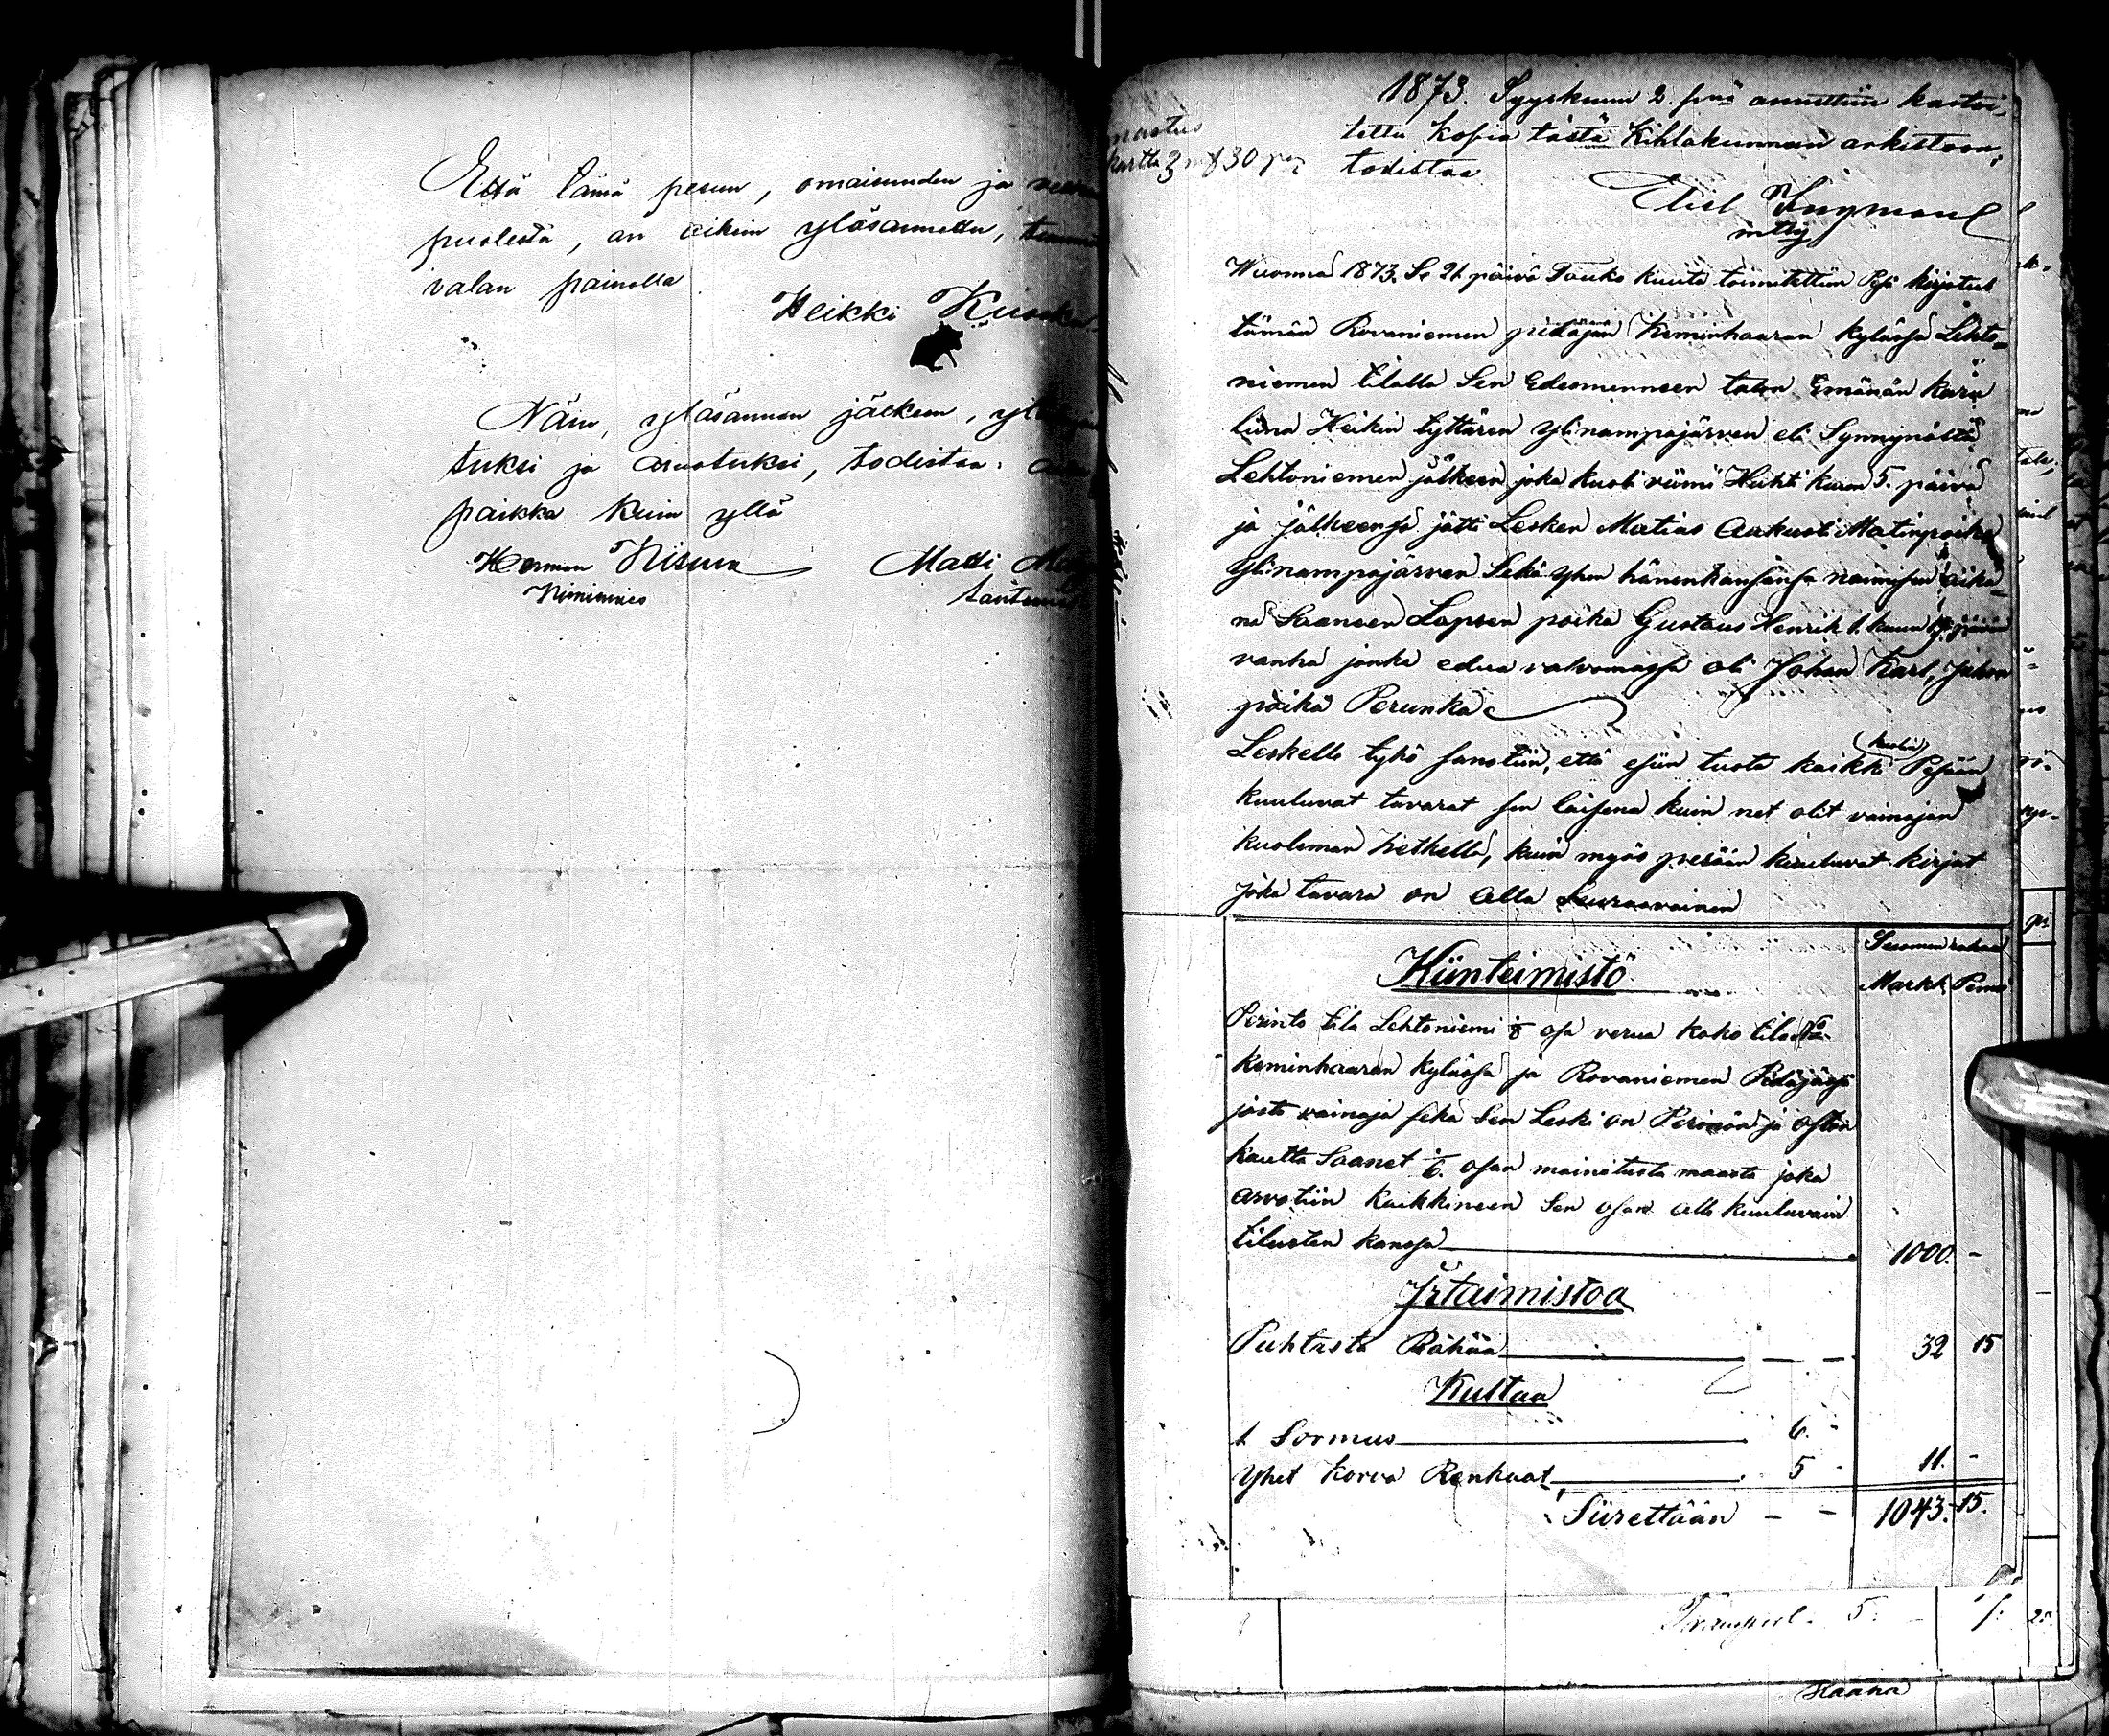 Että tämä pesun, omaisuuden ja
puolesta, on oikein ylösannettu,
valan painolla
Heikki
Näin, ylösannon jälkeen,
tuksi ja arvotuksi, todistaa:
paikka kuin yllä
Herman Niskuen Matti
Nimismies
1873. Syyskuun 2. pnä annettiin kartoi-
tettu kopia tästä Kihlakunnan arkistoon;
todistaa
Eliel Ingman
Wuonna 1873. Se 21 päivä Touko kuuta toimitettiin Pesä kirjotus
tämän Rovaniemen pitäjän Keminhaaran kylässä Lehto-
niemen tilalla Sen Edesmenneen talon Emänän Karo
liina Heikin tyttären Ylinampajärven eli Synnynästä
Lehtoniemen jälkeen joka kuoli viimi Huhti kuun 5. päivä
ja jälkeensä jätti Lesken Matias Aukusti Matinpoika
Ylinampajärven Sekä yhen hänenkansansa naimisen aika-
na Saaneen Lapsen poika Gustaus Henrik 1. kuun
vanha jonka edua valvomassa oli Johan Karl, Juhon
poika Perunka
Leskelle tykö sanottiin, että esiin tuota kaikki (kuolin) Pesään
kuuluvat tavarat sen laisena kuin net olit vainajan
kuoleman hetkellä, kuin myös pesään kuuluvat kirjat
joka tavara on alla Seuraavainen
Suomen rahaa
Kiinteimistö Markk. Penni
Perinto tila Lehtoniemi 1/8 osa verua koko tilasta
Keminhaaran kylässä ja Rovaniemen Pitäjäsä
josta vainaja sekä Sen Leski on Perinön ja oston
kautta Saanet 1/6. osan mainitusta maasta joka
arvotiin kaikkineen Sen osan alla kuuluvain
tilusten kanssa 1000. -
Irtaimistoa
Puhtasta Rahaa 32 15
Kultaa
1 Sormus 6. -
Yhet korva Renkaat 5 - 11. -
Siirettään - - 1043. 15.
5.
25.